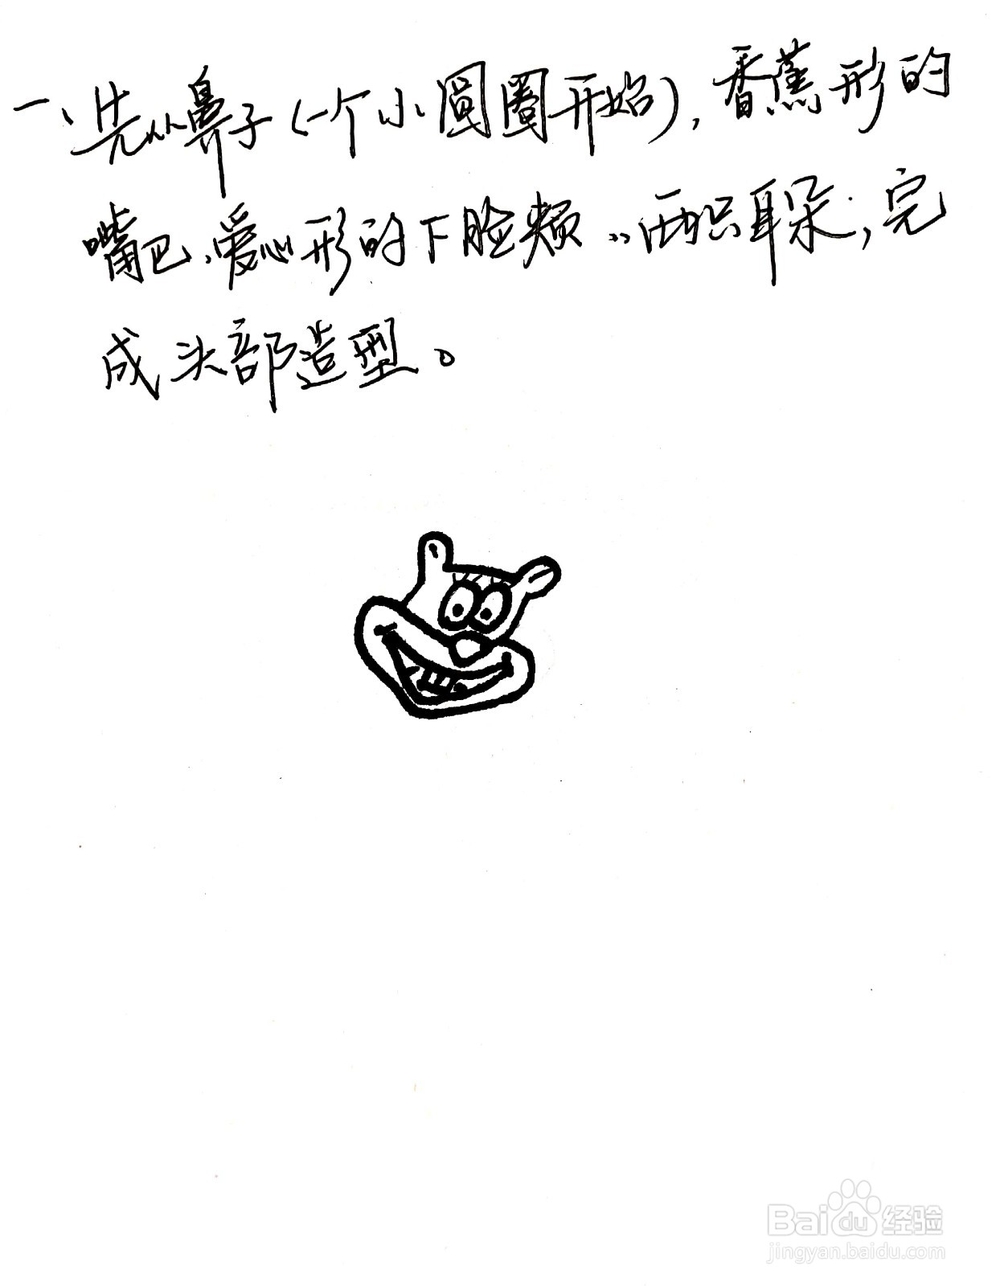 一、先从鼻子(一个小圆圈开始),香蕉形的
嘴巴、爱心形的下脸颊、两只耳朵;完
成头部造型。
Baidu经验
jingyan.baidu.com